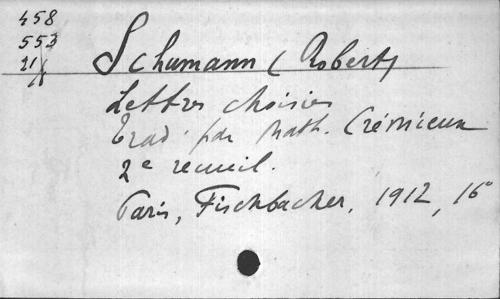 458
553
21
Schumann (Robert)
Lettres choisies
Trad. par Math. Crémieux
2e recueil.
Paris, Fischbacher, 1912, 16°